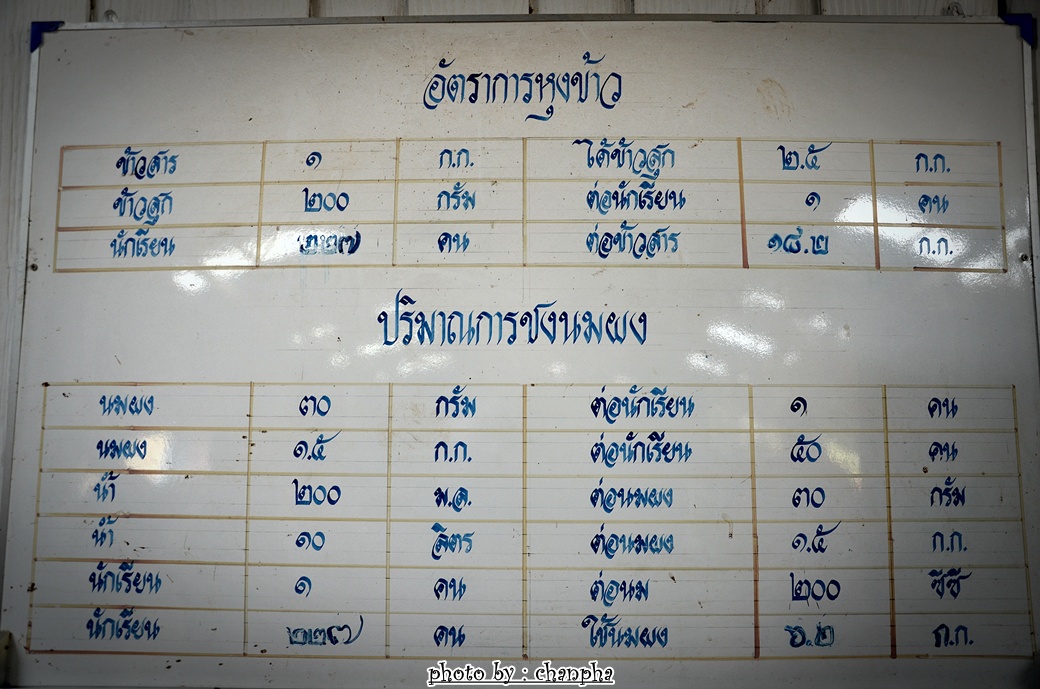 อัตราการหุงข้าว
ข้าวสาร ๑ ก.ก. ได้ข้าวสุก ๒.๕ ก.ก.
ข้าวสุก ๒๐๐ กรัม ต่อนักเรียน ๑ คน
นักเรียน ๒๒๗ คน ต่อข้าวสาร ๑๘.๒ ก.ก.
ปริมาณการชงนมผง
นมผง ๓๐ กรัม ต่อนักเรียน ๑ คน
นมผง ๑.๕ ก.ก. ต่อนักเรียน ๕๐ คน
น้ำ ๒๐๐ ม.ล. ต่อนมผง ๓๐ กรัม
น้ำ ๑๐ ลิตร ต่อนมผง ๑.๕ ก.ก.
นักเรียน ๑ คน ต่อนม ๒๐๐ ซีซี
นักเรียน ๒๒๗ คน ใช้นมผง ๖.๒ ก.ก.
photo by : chanpha